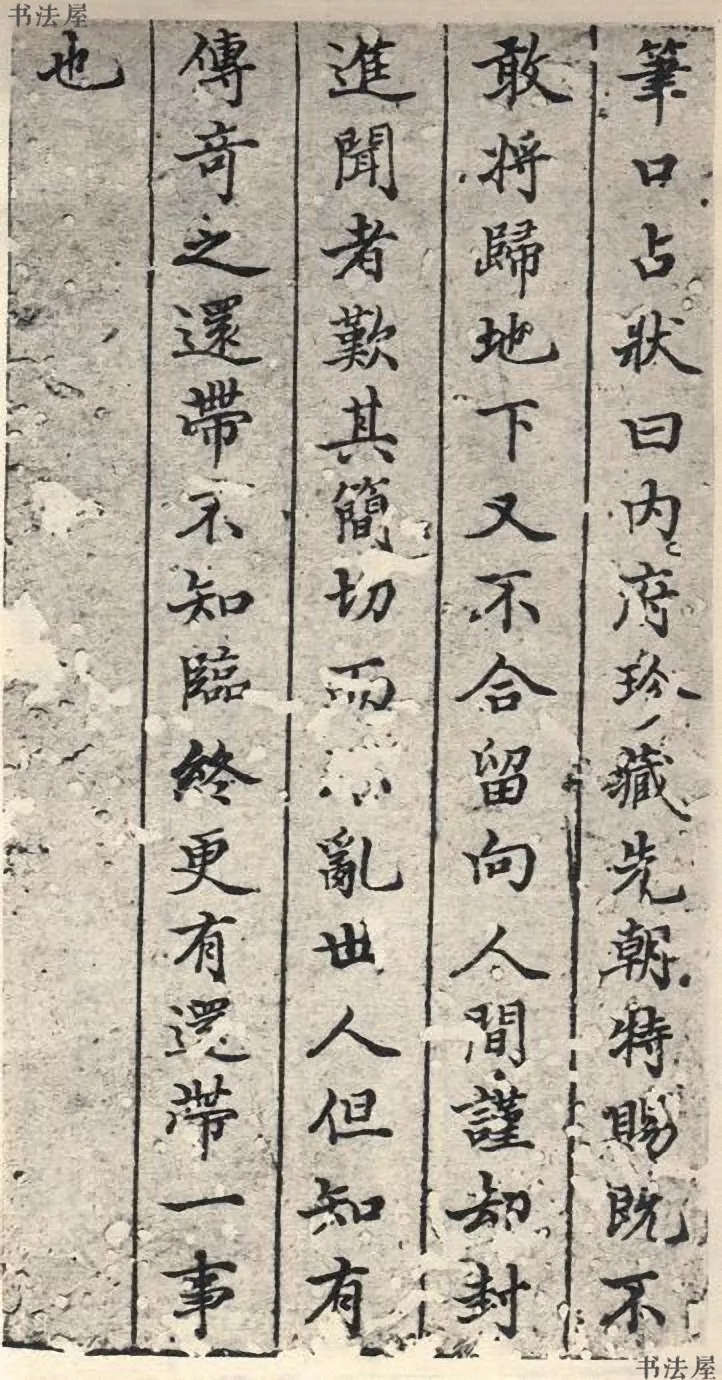 书法屋
筆口占狀曰内府珍藏先朝特賜既不
敢將歸地下又不合留向人間謹却封
進聞者歎其簡切而不亂世人但知有
傳奇之還帶不知臨終更有還帶一事
也
书法屋